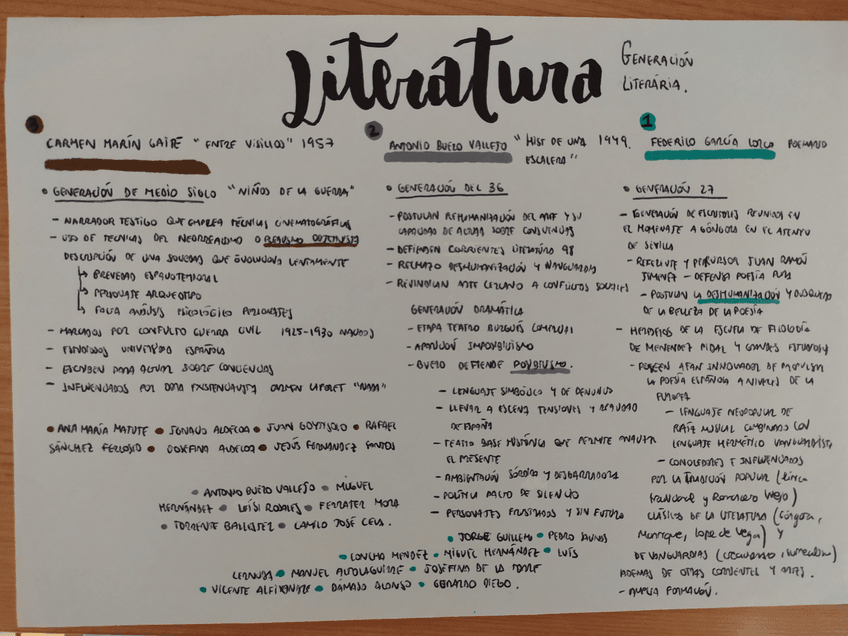 Literatura
GENERACIÓN
LITERÁRIA.
3
CARMEN MARÍN GAITE "ENTRE VISILLOS" 1957
• GENERACIÓN DE MEDIO SIGLO "NIÑOS DE LA GUERRA"
- NARRADOR TESTIGO QUE EMPLEA TÉCNICAS CINEMATOGRÁFICAS
- USO DE TECNICAS DEL NEORREALISMO O REALISMO OBJETIVISTA
DESCRIPCIÓN DE UNA SOCIEDAD QUE EVOLUCIONA LENTAMENTE
BREVEDAD ESPACIOTEMPORAL
PERSONAJE ARQUETIPO
FALTA ANÁLISIS PSICOLÓGICO PERSONAJES
- MARCADOS POR CONFLICTO GUERRA CIVIL 1925-1930 NACIDOS
- ESTUDIOS UNIVERSIDAD ESPAÑOLA
- ESCRIBEN PARA ACTUAR SOBRE CONCIENCIAS
- INFLUENCIADOS POR OBRA EXISTENCIALISTA CARMEN LAFORET "NADA"
• ANA MARÍA MATUTE • IGNACIO ALDECOA • JUAN GOYTISOLO • RAFAEL
SÁNCHEZ FERLOSIO • JOSEFINA ALDECOA • JESÚS FERNANDEZ SANTOS
2
ANTONIO BUERO VALLEJO "HIST DE UNA 1949.
ESCALERA"
• GENERACIÓN DEL 36
- POSTULAN REHUMANIZACIÓN DEL ARTE Y SU
CAPACIDAD DE ACTUAR SOBRE CONCIENCIAS
- DEFIENDEN CORRIENTES LITERATURA 98
- RECHAZO DESHUMANIZACIÓN Y VANGUARDIAS
- REVINDICAN ARTE CERCANO A CONFLICTOS SOCIALES
GENERACIÓN DRAMÁTICA
- ETAPA TEATRO BURGUÉS COMERCIAL
- APARICIÓN IMPOSIBILISMO
- BUERO DEFIENDE POSIBILISMO.
- LENGUAJE SIMBÓLICO Y DE DENUNCIA
- LLEVAR A ESCENA TENSIONES Y REALIDAD
DE ESPAÑA
- TEATRO BASE HISTÓRICA QUE PERMITE ANALIZAR
EL PRESENTE
- AMBIENTACIÓN SÓRDIDA Y DESGARRADORA
- POLÍTICA PACTO DE SILENCIO
- PERSONAJES FRUSTRADOS Y SIN FUTURO
• ANTONIO BUERO VALLEJO • MIGUEL
HERNÁNDEZ • LUÍS ROSALES • FERRATER MORA
• TORRENTE BALLESTER • CAMILO JOSÉ CELA.
1
FEDERICO GARCÍA LORCA POEMARIO
• GENERACIÓN 27
- GENERACIÓN DE ESCRITORES REUNIDOS EN
EL HOMENAJE A GÓNGORA EN EL ATENEO
DE SEVILLA
- REFERENTE Y PERCURSOR JUAN RAMÓN
JIMENEZ - DEFENSA POESÍA PURA
- POSTULAN LA DESHUMANIZACIÓN Y BUSQUEDA
DE LA BELLEZA DE LA POESÍA
- HEREDEROS DE LA ESCUELA DE FILOLOGÍA
DE MENENDEZ PIDAL Y GRANDES ESTUDIOSOS
- POSEEN AFÁN INNOVADOR DE
LA POESÍA ESPAÑOLA A NIVELES DE LA
EUROPEA
- LENGUAJE NEOPOPULAR DE
RAÍZ MUSICAL COMBINADO CON
LENGUAJE HERMÉTICO VANGUARDISTA
- CONOCEDORES E INFLUENCIADOS
POR LA TRADICIÓN POPULAR (lírica
tradicional y Romancero Viejo)
CLÁSICOS DE LA LITERATURA (Góngora,
Manrique, Lope de Vega) Y
DE VANGUARDIAS (creacionismo, surrealismo)
ADEMAS DE OTRAS CORRIENTES Y ARTES.
- AMPLIA FORMACIÓN.
• JORGE GUILLEN • PEDRO SALINAS
• CONCHA MENDEZ • MIGUEL HERNÁNDEZ • LUÍS
CERNUDA • MANUEL ALTOLAGUIRRE • JOSEFINA DE LA TORRE
• VICENTE ALEIXANDRE • DÁMASO ALONSO • GERARDO DIEGO.